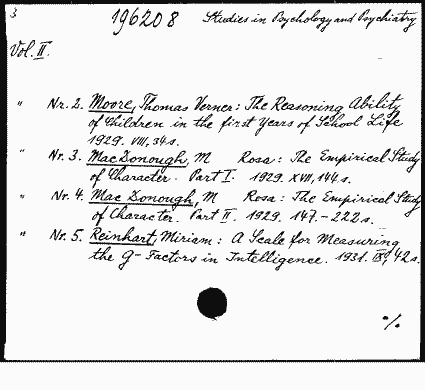 3 196208 Studies in Psychology and Psychiatry
Vol. II.
" Nr. 2. Moore, Thomas Verner: The Reasoning Ability
of Children in the first Years of School Life
1929. VIII, 34 s.
" Nr. 3. MacDonough, M Rosa: The Empirical Study
of Character. Part I. 1929. XVII, 144 s.
" Nr. 4. Mac Donough, M Rosa: The Empirical Study
of Character. Part II. 1929. 147.-222 s.
" Nr. 5. Reinhart, Miriam: A Scale for Measuring
the G-Factors in Intelligence. 1931. IX, 42 s.
%